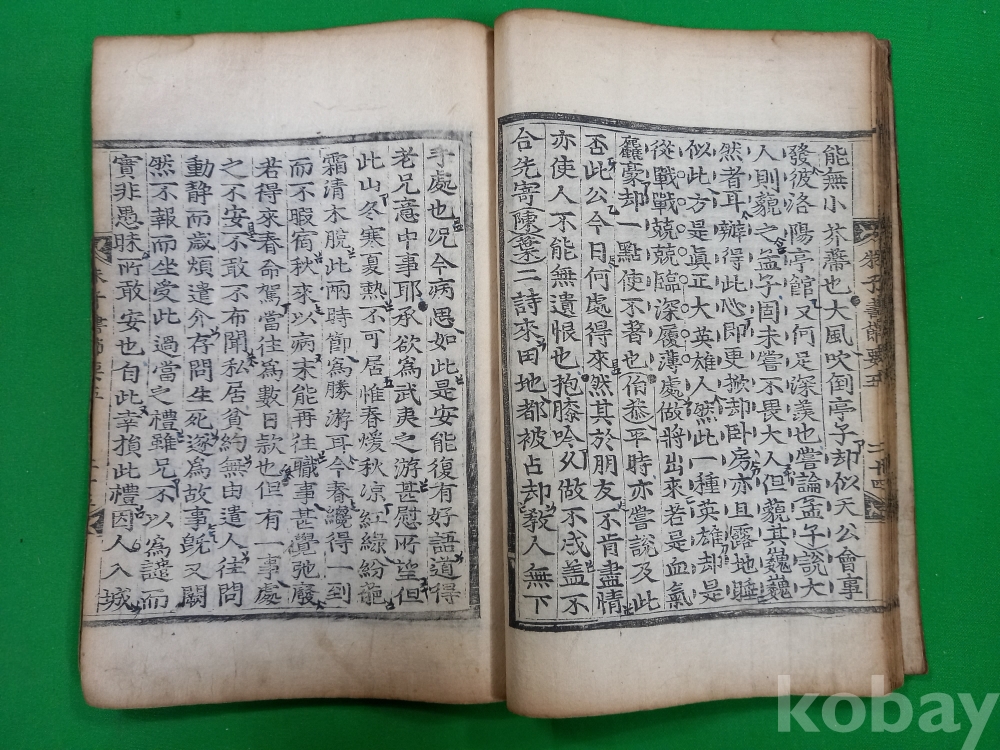 能無小芥蔕也大風吹倒亭子却似天公會事
發彼洛陽亭館又何足深羨也嘗論孟子說大
人則藐之孟子固未嘗不畏大人但藐其巍巍
然者耳辦得此心即更掀却卧房亦且露地睡
似此方是眞正大英雄人然此一種英雄却是
從戰戰兢兢臨深履薄處做將出來若是血氣
麤豪却一點使不著也伯恭平時亦嘗說及此
否此公今日何處得來然其於朋友不肯盡情
亦使人不能無遺恨也抱膝吟久做不成盖不
合先寄陳葉二詩來田地都被占却敎人無下
手處也况今病思如此是安能復有好語道得
老兄意中事耶承欲爲武夷之游甚慰所望但
此山冬寒夏熱不可居惟春煖秋凉紅綠紛葩
霜清木脫此兩時節爲勝游耳今春纔得一到
而不暇宿秋來以病未能再往職事甚覺弛廢
若得來春命駕當往爲數日款也但有一事處
之不安不敢不布聞私居貧約無由遣人往問
動靜而歲煩遣介存問生死遂爲故事旣又闕
然不報而坐受此過當之禮雖兄不以爲譴而
實非愚昧所敢安也自此幸損此禮因人入城
朱子書節要五
二十四
朱子書節要五
kobay